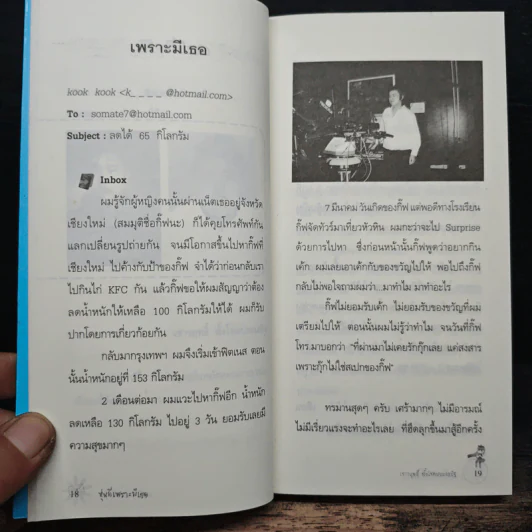 เพราะมีเธอ
kook kook <k_ _ _ _ @hotmail.com>
To : somate7@hotmail.com
Subject : ลดได้ 65 กิโลกรัม
Inbox
ผมรู้จักผู้หญิงคนนั้นผ่านเน็ตเธออยู่จังหวัด
เชียงใหม่ (สมมุติชื่อกิ๊ฟนะ) ก็ได้คุยโทรศัพท์กัน
แลกเปลี่ยนรูปถ่ายกัน จนมีโอกาสขึ้นไปหากิ๊ฟที่
เชียงใหม่ ไปค้างกับป้าของกิ๊ฟ จำได้ว่าก่อนกลับเรา
ไปกินไก่ KFC กัน แล้วกิ๊ฟขอให้ผมสัญญาว่าต้อง
ลดน้ำหนักให้เหลือ 100 กิโลกรัมให้ได้ ผมก็รับ
ปากโดยการเกี่ยวก้อยกัน
กลับมากรุงเทพฯ ผมจึงเริ่มเข้าฟิตเนส ตอน
นั้นน้ำหนักอยู่ที่ 153 กิโลกรัม
2 เดือนต่อมา ผมแวะไปหากิ๊ฟอีก น้ำหนัก
ลดเหลือ 130 กิโลกรัม ไปอยู่ 3 วัน ยอมรับเลยมี
ความสุขมากๆ
18 หุ่นดีเพราะมีเธอ
7 มีนาคม วันเกิดของกิ๊ฟ แต่พอดีทางโรงเรียน
กิ๊ฟจัดทัวร์มาเที่ยวหัวหิน ผมกะว่าจะไป Surprise
ด้วยการไปหา ซึ่งก่อนหน้านั้นกิ๊ฟพูดว่าอยากกิน
เค้ก ผมเลยเอาเค้กกับของขวัญไปให้ พอไปถึงกิ๊ฟ
กลับไม่พอใจถามผมว่า..มาทำไม มาทำอะไร
กิ๊ฟไม่ยอมรับเค้ก ไม่ยอมรับของขวัญที่ผม
เตรียมไปให้ ตอนนั้นผมไม่รู้ว่าทำไม จนวันที่กิ๊ฟ
โทร.มาบอกว่า "ที่ผ่านมาไม่เคยรักกุ๊กเลย แค่สงสาร
เพราะกุ๊กไม่ใช่สเปกของกิ๊ฟ"
ทรมานสุดๆ ครับ เศร้ามากๆ ไม่มีอารมณ์
ไม่มีเรี่ยวแรงจะทำอะไรเลย ที่ฮึดลุกขึ้นมาสู้อีกครั้ง
19